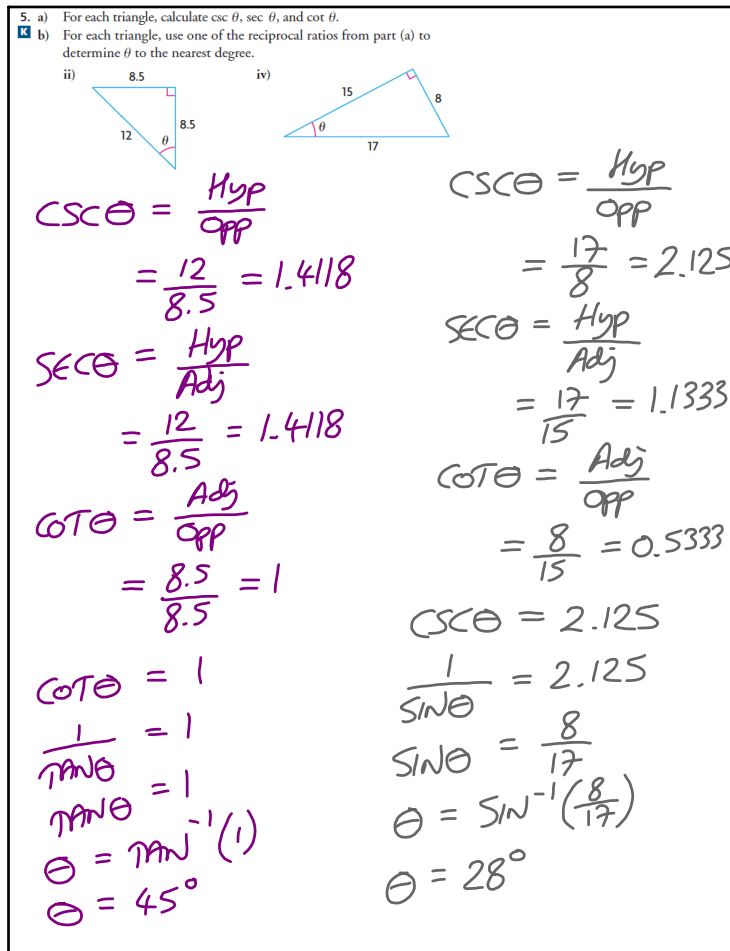 5. a) For each triangle, calculate csc θ, sec θ, and cot θ.
K b) For each triangle, use one of the reciprocal ratios from part (a) to
determine θ to the nearest degree.
ii)
8.5
8.5
12
θ
iv)
15
8
θ
17
CSCθ = Hyp/Opp
= 12/8.5 = 1.4118
SECθ = Hyp/Adj
= 12/8.5 = 1.4118
COTθ = Adj/Opp
= 8.5/8.5 = 1
COTθ = 1
1/TANθ = 1
TANθ = 1
θ = TAN⁻¹(1)
θ = 45°
CSCθ = Hyp/Opp
= 17/8 = 2.125
SECθ = Hyp/Adj
= 17/15 = 1.1333
COTθ = Adj/Opp
= 8/15 = 0.5333
CSCθ = 2.125
1/SINθ = 2.125
SINθ = 8/17
θ = SIN⁻¹(8/17)
θ = 28°